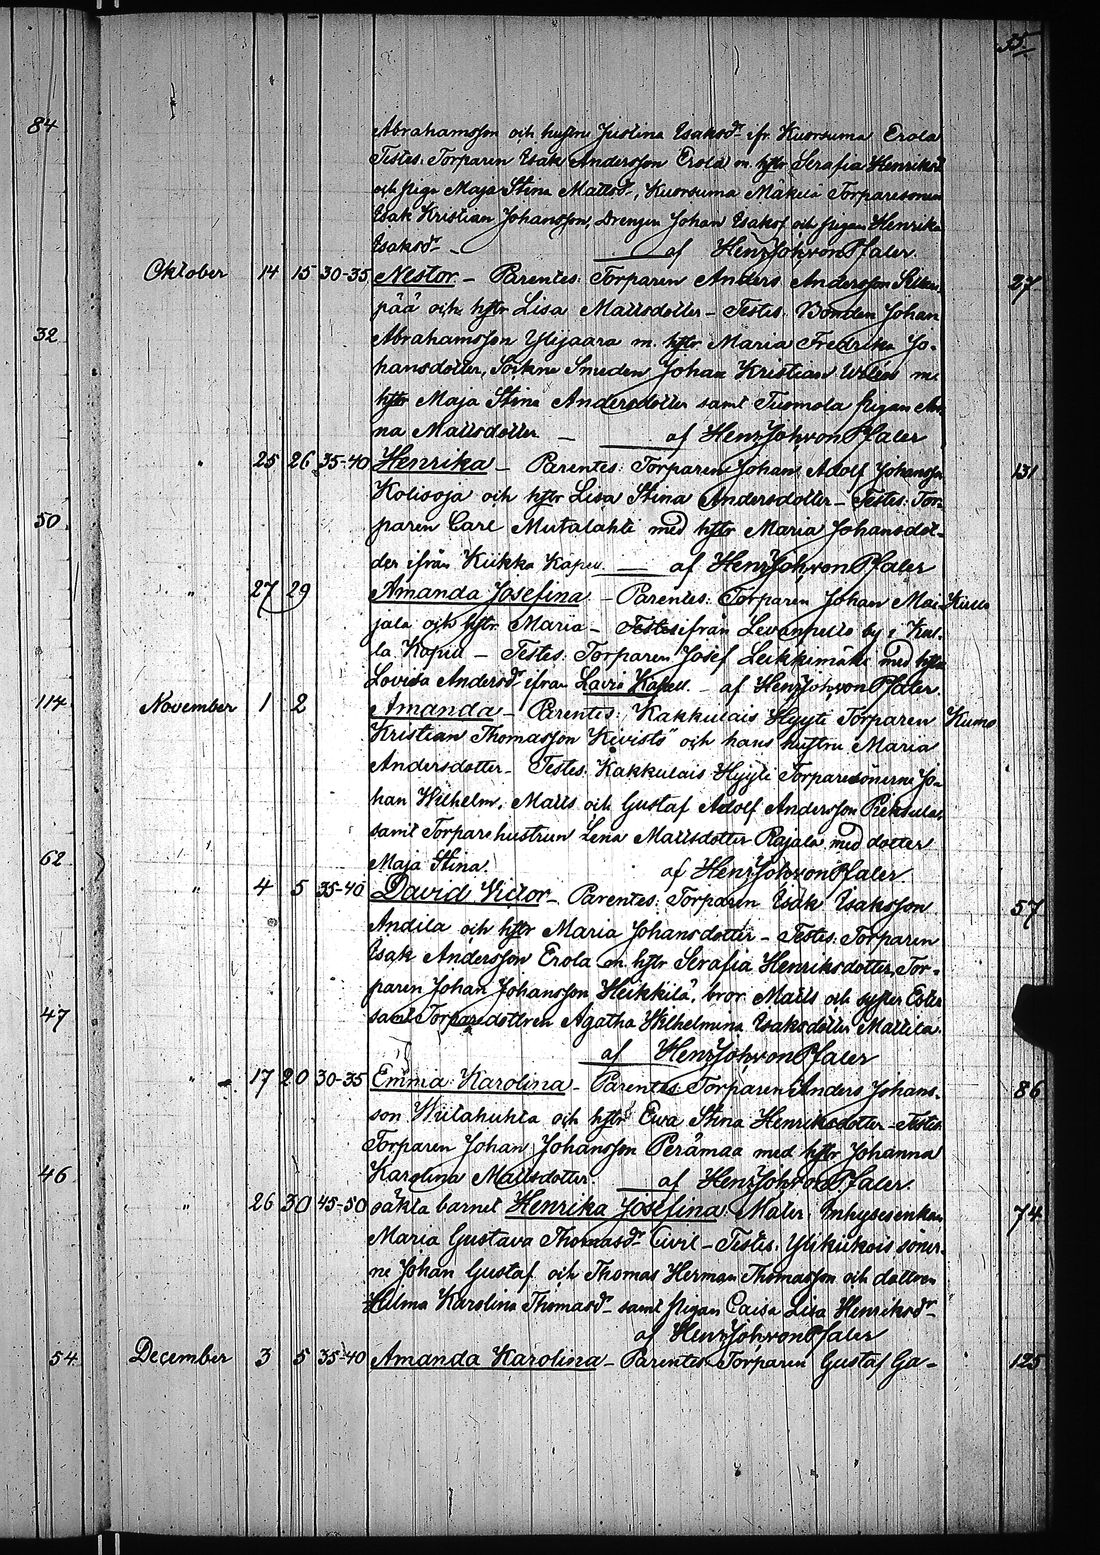 55.
84
Abrahamsson och hustru Justina Isaksdr ifr. Kuorsuma Erola
Testes: Torparen Isak Andersson Erola m. hstr Serafia Henriksd
och piga Maja Stina Mattsdr, Kuorsuma Mäkelä Torparesonen
Isak Kristian Johansson, Drengen Johan Isaksf och pigan Henrika
Isaksdr – af HenrJohvonPfaler.
Oktober 14 15 30-35 Nestor – Parentes: Torparen Anders Andersson 27
pää och hstr Lisa Mattsdotter – Testes: Bonden Johan
32
Abrahamsson Ylijaara m. hstr Maria Fredrika Jo-
hansdotter, Smeden Johan Kristian m.
hstr Maja Stina Andersdotter samt Tuomola pigan An-
na Mattsdotter – af HenrJohvonPfaler
" 25 26 35-40 Henrika – Parentes: Torparen Johan Adolf Johansson 131
Kolisoja och hstr Lisa Stina Andersdotter – Testes: Tor-
50
paren Carl Mutalahti med hstr Maria Johansdot-
der ifrån Kiikka Kapell. – af HenrJohvonPfaler
" 27 29 Amanda Josefina – Parentes: Torparen Johan Mai- Kulla
jala och hstr Maria – Testes ifrån Levanpelto by i Kul-
la Kapell – Testes: Torparen Josef Leikkimäki med hstr
Lovisa Andersdr ifrån Lavia Kapell. – af HenrJohvonPfaler.
114
November 1 2 Amanda – Parentes: Kakkulais Hyyti Torparen Kumo
Kristian Thomasson Kivistö och hans hustru Maria
Andersdotter – Testes: Kakkulais Hyyti Torparesönerne Jo-
han Wilhelm, Matts och Gustaf Adolf Andersson
samt Torparehustrun Lena Mattsdotter Rajala med dotter
62
Maja Stina. af HenrJohvonPfaler.
" 4 5 35-40 David Victor – Parentes: Torparen Isak Isaksson 57
Andila och hstr Maria Johansdotter – Testes: Torparen
Isak Andersson Erola m. hstr Serafia Henriksdotter, Tor-
paren Johan Johansson Heikkilä, bror Matts och syster Ester
47
samt Torparedottren Agatha Wilhelmina Isaksdotter Mattila.
af HenrJohvonPfaler
" 17 20 30-35 Emma Karolina – Parentes: Torparen Anders Johans- 86
son Wiitahuhta och hstr Ewa Stina Henriksdotter – Testes:
Torparen Johan Johansson Perämaa med hstr Johanna
46
Karolina Mattsdotter. af HenrJohvonPfaler.
" 26 30 45-50 oäkta barnet Henrika Josefina. Mater: Inhysesenkan 74
Maria Gustava Thomasdr Civil – Testes: Ylikukois söner-
ne Johan Gustaf och Thomas Herman Thomasson och dottren
Hilma Karolina Thomasdr – samt pigan Caisa Lisa Henriksdr –
af HenrJohvonPfaler
54
December 3 5 35-40 Amanda Karolina – Parentes: Torparen Gustaf Ga- 125